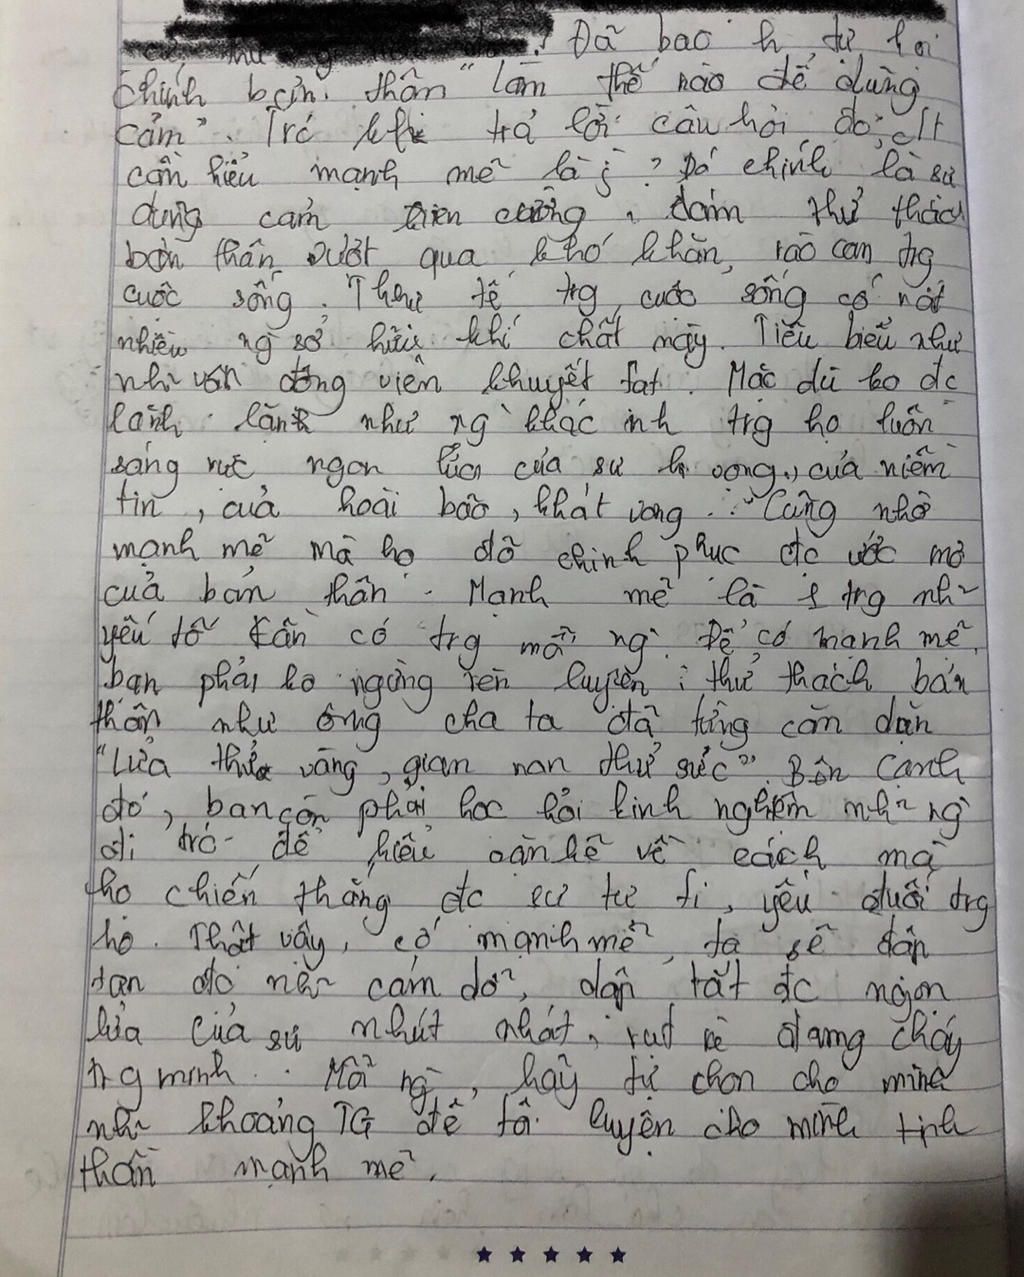 ? Đã bao h tự hỏi
chính bản thân "làm thế nào để dũng
cảm". Trc khi trả lời câu hỏi đó, 
cần hiểu mạnh mẽ là j? Đó chính là sự
dũng cảm kiên cường, dám thử thách
bản thân vượt qua khó khăn, rào cản trg
cuộc sống. Thực tế trg cuộc sống có rất
nhiều ng sở hữu khí chất này. Tiêu biểu như
như vận động viên khuyết tật. Mặc dù ko đc
lành lặn như ng khác trg họ luôn
sáng rực ngọn lửa của sự hi vọng, của niềm
tin, của hoài bão, khát vọng... Cũng nhờ
mạnh mẽ mà họ đã chinh phục đc ước mơ
của bản thân. Mạnh mẽ là 1 trg nh~
yếu tố cần có trg mỗi ng. Để có mạnh mẽ,
bạn phải ko ngừng rèn luyện; thử thách bản
thân như ông cha ta đã từng căn dặn
"Lửa thử vàng, gian nan thử sức". Bên cạnh
đó, bạn còn phải học hỏi kinh nghiệm nh~ ng
đi trc để hiểu về cách mà
họ chiến thắng đc sự tự ti, yếu đuối trg
họ. Thật vậy, có mạnh mẽ, ta sẽ dập
tan đc nh~ cám dỗ, dập tắt đc ngọn
lửa của sự nhút nhát, rụt rè đang cháy
trg mình. Mỗi ng, hãy tự chọn cho mình
nh~ khoảng TG để luyện cho mình tinh
thần mạnh mẽ.